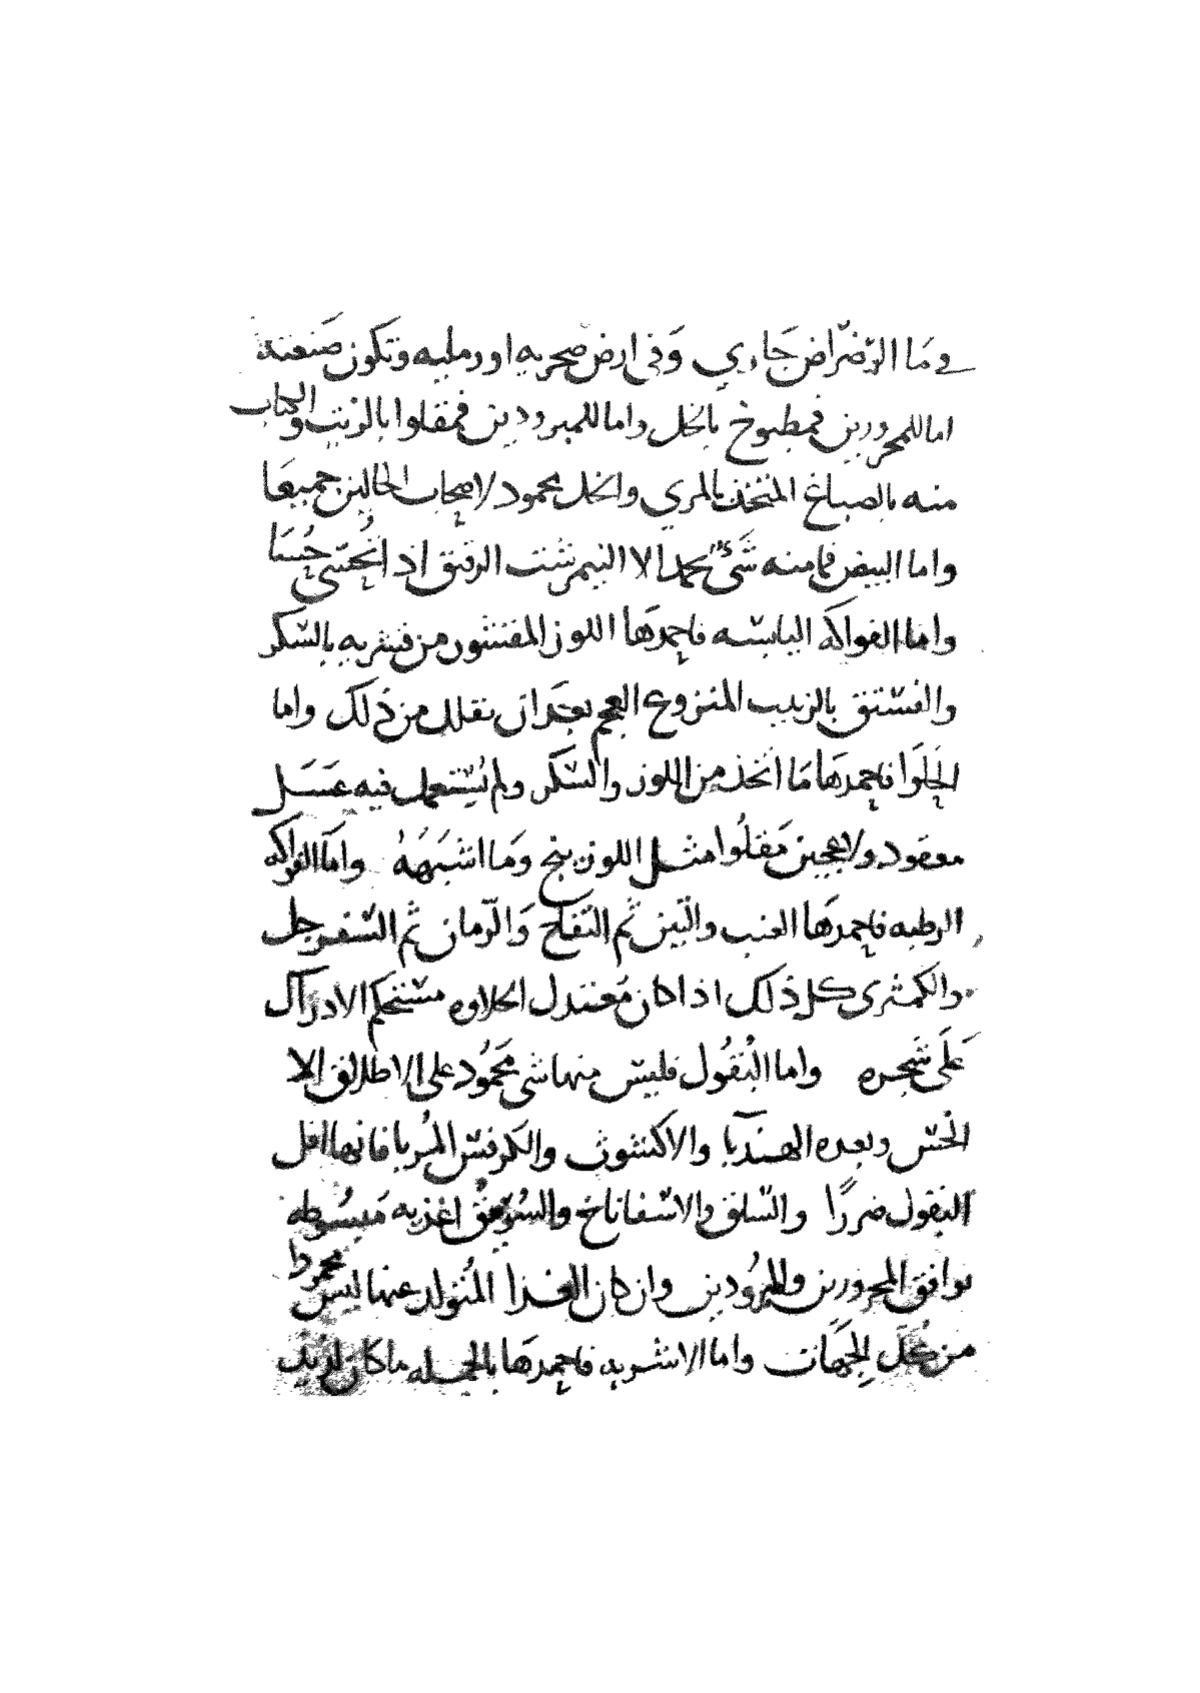 في ما الرضراض جاري وفي ارض صخريه او رمليه وتكون صنعته
اما للمحرورين فمطبوخ بالخل واما للمبرودين فمقلوا بالزيت والكباب
منه بالصباغ المتخذ بالمري والخل محمود لاصحاب الحالين جميعا
واما البيض فما منه شئ يحمد الا النيمرشت الرقيق اذ اتحسى حسا
واما الفواكه اليابسه فاحمدها اللوز المقشور من قشريه بالسكر
والفستق بالزبيب المنزوع العجم بعد ان يقلل من ذلك واما
الحلوا فاحمدها ما اتخذ من اللوز والسكر ولم يستعمل فيه عسل
معقود ولا عجين مقلوا مثل اللوزينج وما اشبهه واما الفواكه
الرطبه فاحمدها العنب والتين ثم التفاح والرمان ثم السفرجل
والكمثرى كل ذلك اذا كان معتدل الحلاوه مستحكم الادراك
على شجره واما البقول فليس منها شي محمود على الاطلاق الا
الخس وبعده الهندبا والاكشوث والكرفس المربا فانها اقل
البقول ضررا والسلق والاسفاناخ والسرمق اغذيه مبسوطه
توافق المحرورين والمبرودين وان كان الغذا المتولد عنها ليس محمودا
من كل الجهات واما الاشربه فاحمدها بالجمله ما كان لذيذ